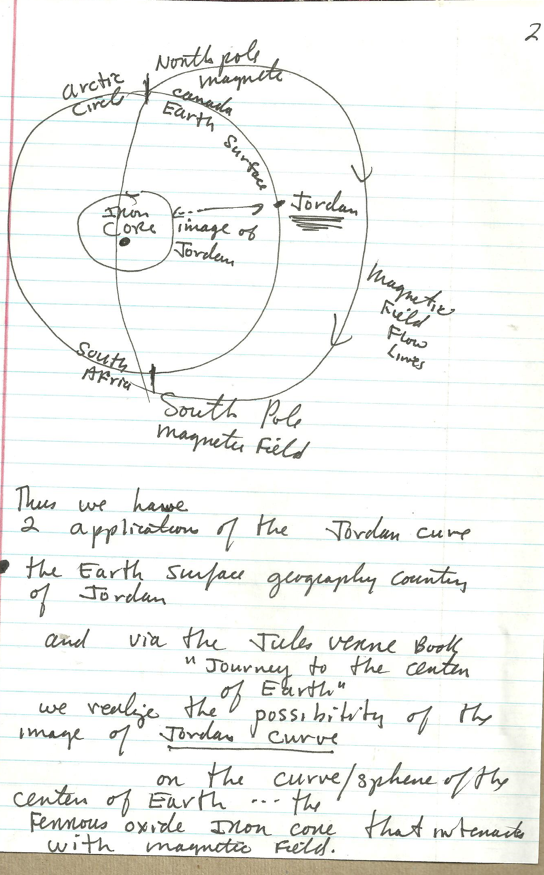 2
North pole
magnetic
Arctic
Circle
Canada
Earth
Surface
Jordan
Iron
Core
image of
Jordan
Magnetic
Field
Flow
Lines
South
Afria
South Pole
Magnetic Field
Thus we have
2 application of the Jordan curve
the Earth surface geography country
of Jordan
and via the Jules verne Book
"Journey to the center
of Earth"
we realize the possibility of the
image of Jordan curve
on the curve/sphere of the
center of Earth ... the
Ferrous oxide Iron core that interacts
with magnetic Field.